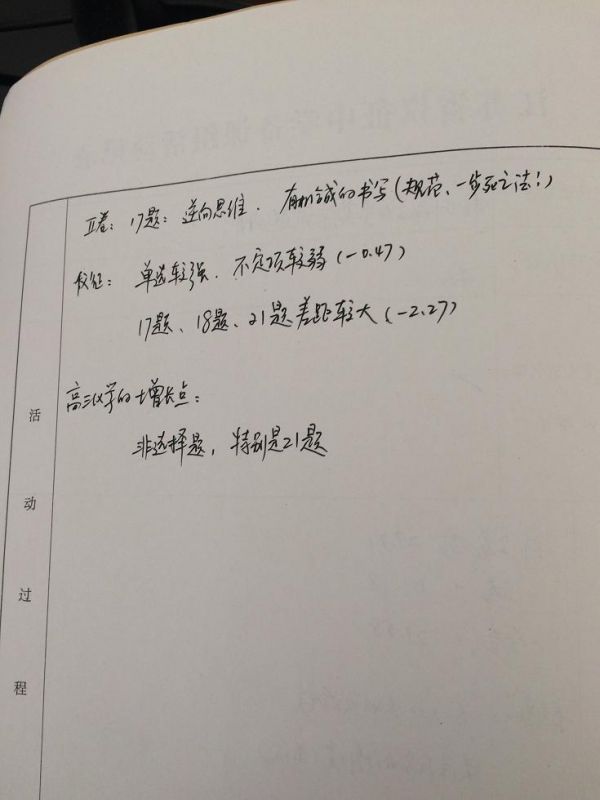 17题：逆向思维．有机合成的书写（规范、一步死之法！）
仪征：单选较强．不定项较弱（-0.47）
17题、18题、21题差距较大（-2.27）
高三化学的增长点：
非选择题，特别是21题
活动过程